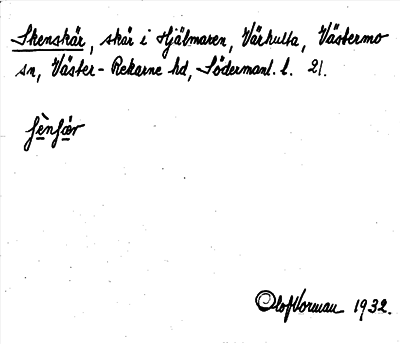 Skenskär, skär i Hjälmaren, Värhulta, Västermo
sn, Väster-Rekarne hd, Södermanl. l. 21.
Olof Vorman 1932.